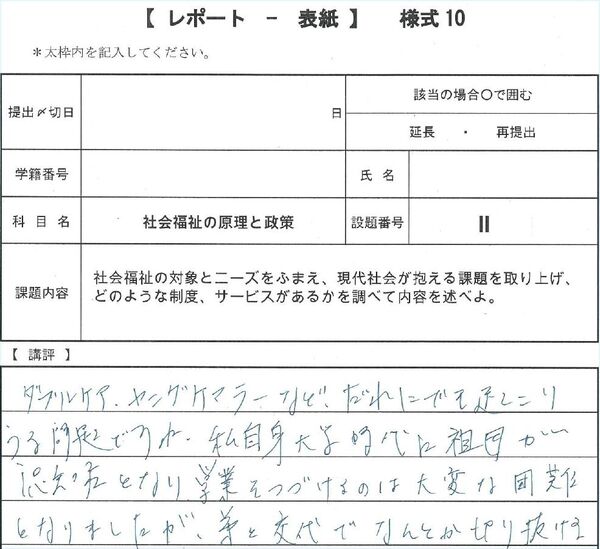 【 レポート － 表紙 】 様式10
＊太枠内を記入してください。
提出〆切日 日 該当の場合〇で囲む
延長 ・ 再提出
学籍番号 氏 名
科 目 名 社会福祉の原理と政策 設題番号 Ⅱ
課題内容 社会福祉の対象とニーズをふまえ、現代社会が抱える課題を取り上げ、
どのような制度、サービスがあるかを調べて内容を述べよ。
【 講評 】
ダブルケア、ヤングケアラーなど、だれにでも起こり
うる問題ですね。私自身大学時代に祖母が
認知症となり学業をつづけるのは大変な困難
となりましたが、弟と交代でなんとか切り抜ける